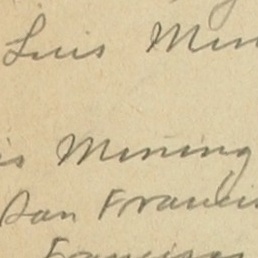 Luis Min
is Mining
San Francis
Francisco